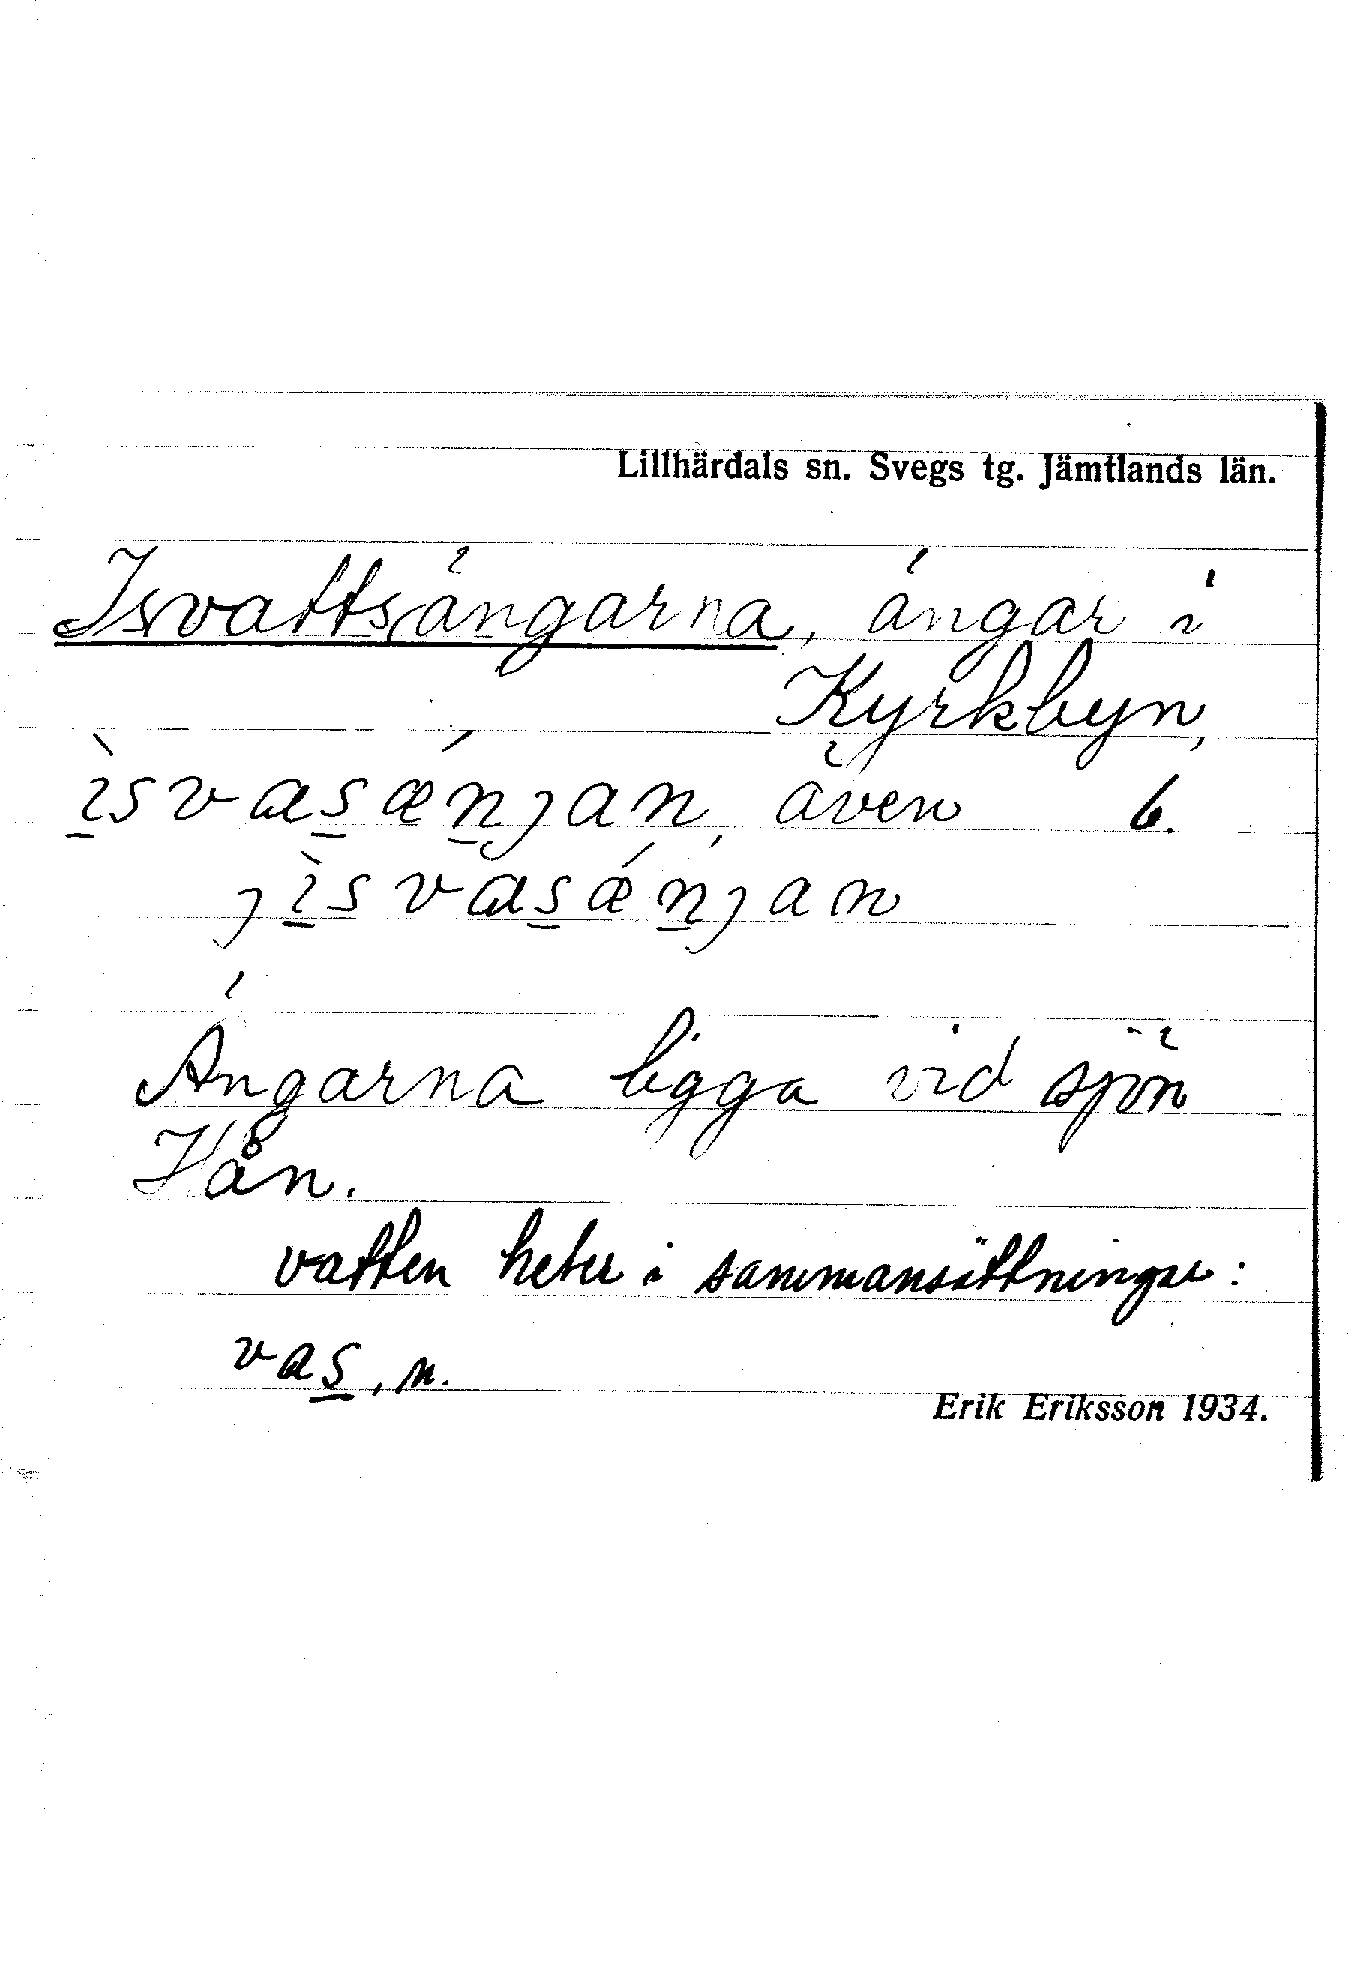 Lillhärdals sn. Svegs tg. Jämtlands län.
Isvattsängarna, ängar i
Kyrkbyn,
ìsvasǽnjan, även 6.
jìsvasǽnjan
Ängarna ligga vid sjön
Hån.
vatten heter i sammansättningar:
vas, n.
Erik Eriksson 1934.